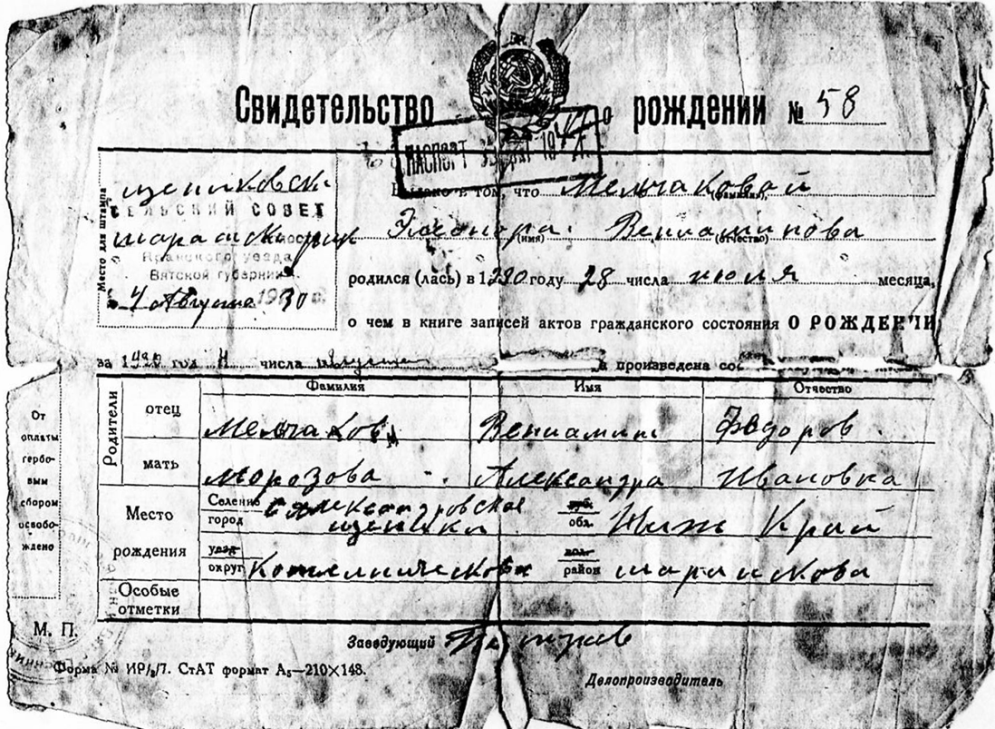 Свидетельство о рождении № 58
ПАСПОРТ
Место для штампа
щениковски
СЕЛЬСКИЙ СОВЕТ
Яранского уезда
Вятской губернии
4 Августа 1930 г.
Выдано в том, что Мельчаковой
(фамилия),
Вениаминова
(имя) (отчество)
родился (лась) в 1930 году 28 числа июля месяца,
о чем в книге записей актов гражданского состояния О РОЖДЕНИИ
за 19 год 4 числа августа произведена
Фамилия Имя Отчество
Родители
отец Мельчаков Вениамин Федоров
мать Морозова Александра Ивановна
Место рождения
Селение город с Александровское щеники
обл. Ниж Край
уезд округ Котельнический
вол. район
Особые отметки
От оплаты гербовым сбором освобождено
М. П.
Заведующий
Форма № ИР/₃/7. СтАТ формат А₅—210×148.
Делопроизводитель